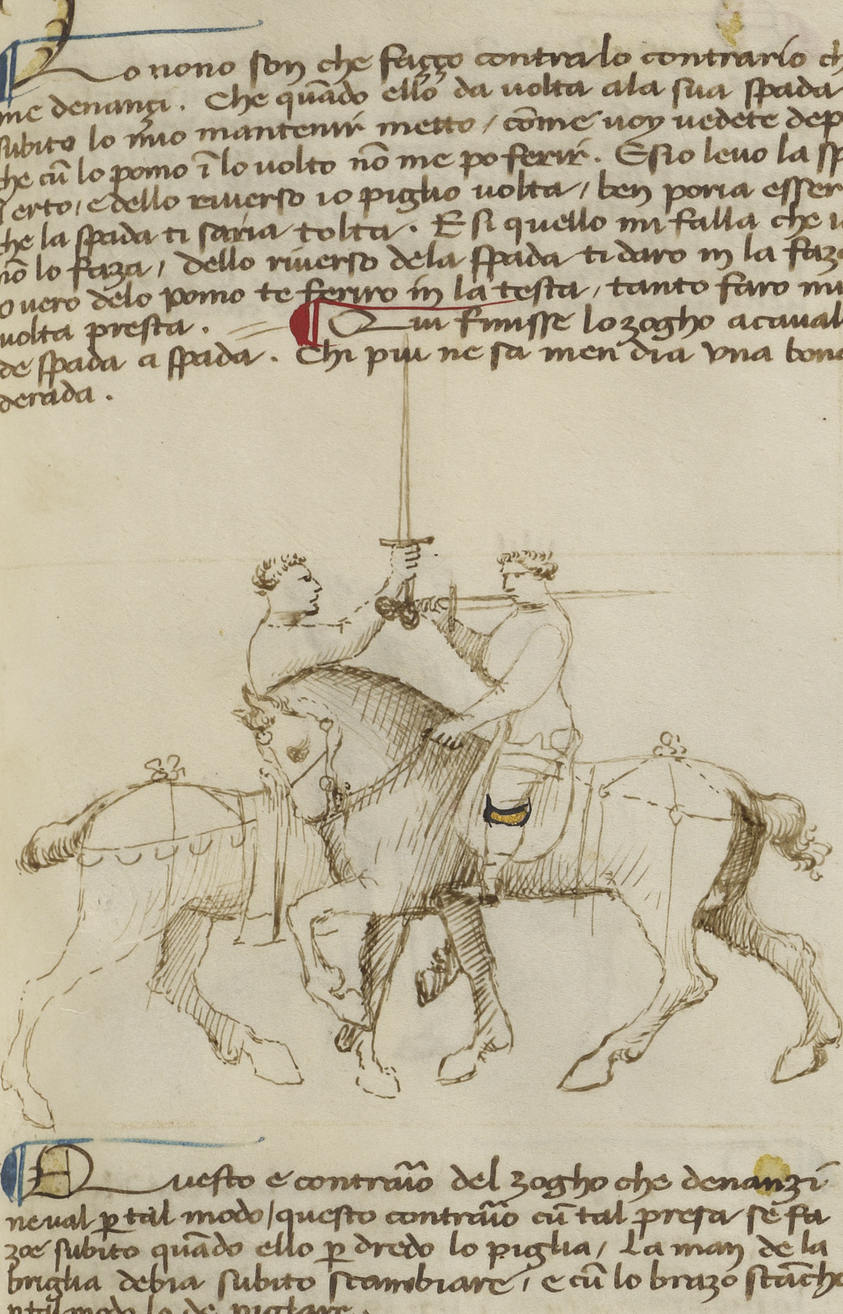 Lo nono son che faço contra lo contrario ch
me denançi. Che quādo ello da volta ala sua spada
subito lo mio mantenir metto / come voy vedete dep
che cū lo pomo ī lo volto nō me po ferir. E s'io levo la sp
erto / e dello riverso io piglio volta / ben poria esser
che la spada ti saria tolta. E si quello mi falla che
nō lo faza / dello riverso dela spada ti daro in la faz
overo delo pomo te feriro in la testa / tanto faro mi
volta presta. Qui finisse lo zogho a caval
de spada a spada. Chi piu ne sa men dia una bon
derada.
Questo e contraīo del zogho che denanzi
ne val p tal modo / questo contraīo cū tal presa se fa
zoe subito quādo ello p dredo lo piglia / La man de la
briglia debia subito scambiare / e cū lo brazo stāch
modo lo de pigliare.